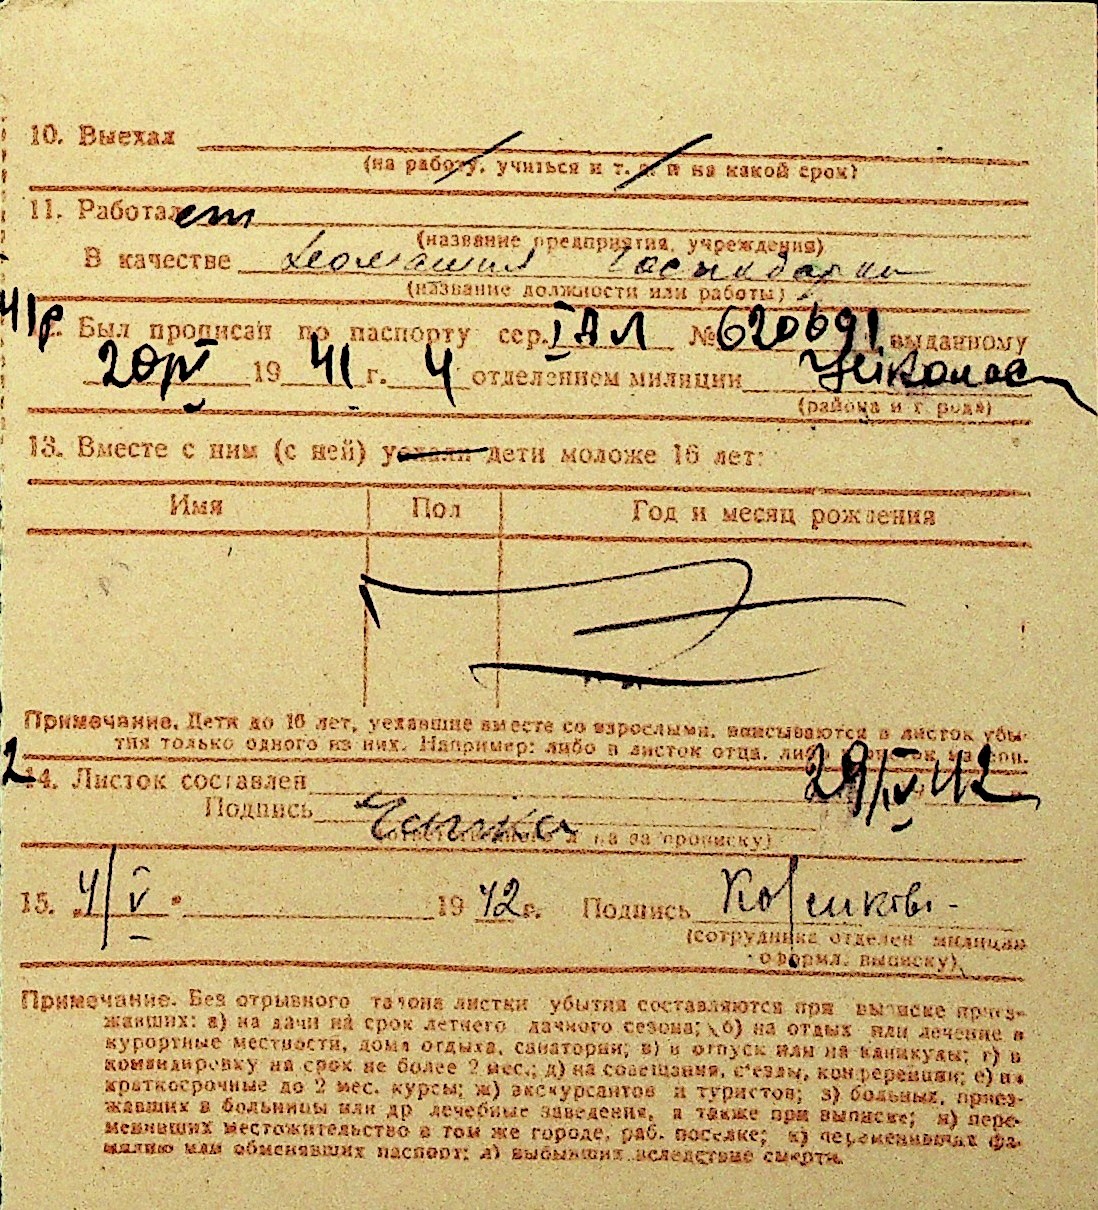 10. Выехал
(на работу, учиться и т. д. и на какой срок)
11. Работал
(название предприятия, учреждения)
В качестве домашняя
(название должности или работы)
Был прописан по паспорту сер. I АЛ № 620691 выданному
1941 г. 4 отделением милиции
(района и города)
13. Вместе с ним (с ней) уехали дети моложе 16 лет:
Имя Пол Год и месяц рождения
Примечание. Дети до 16 лет, уехавшие вместе со взрослыми, вписываются в листок убы-
тия только одного из них. Например: либо в листок отца, либо
14. Листок составлен 29/IV 42
Подпись
(ответственного за прописку)
15. 4/V 1942 г. Подпись
(сотрудника отделен. милиции
оформл. выписку)
Примечание. Без отрывного талона листки убытия составляются при выписке приез-
жавших: а) на дачи на срок летнего дачного сезона; б) на отдых или лечение в
курортные местности, дома отдыха, санатории; в) в отпуск или на каникулы; г) в
командировку на срок не более 2 мес.; д) на совещания, съезды, конференции; е) на
краткосрочные до 2 мес. курсы; ж) экскурсантов и туристов; з) больных, приез-
жавших в больницы или др. лечебные заведения, а также при выписке; и) пере-
менивших местожительство в том же городе, раб. поселке; к) переменивших фа-
милию или обменявших паспорт; л) выбывших вследствие смерти.